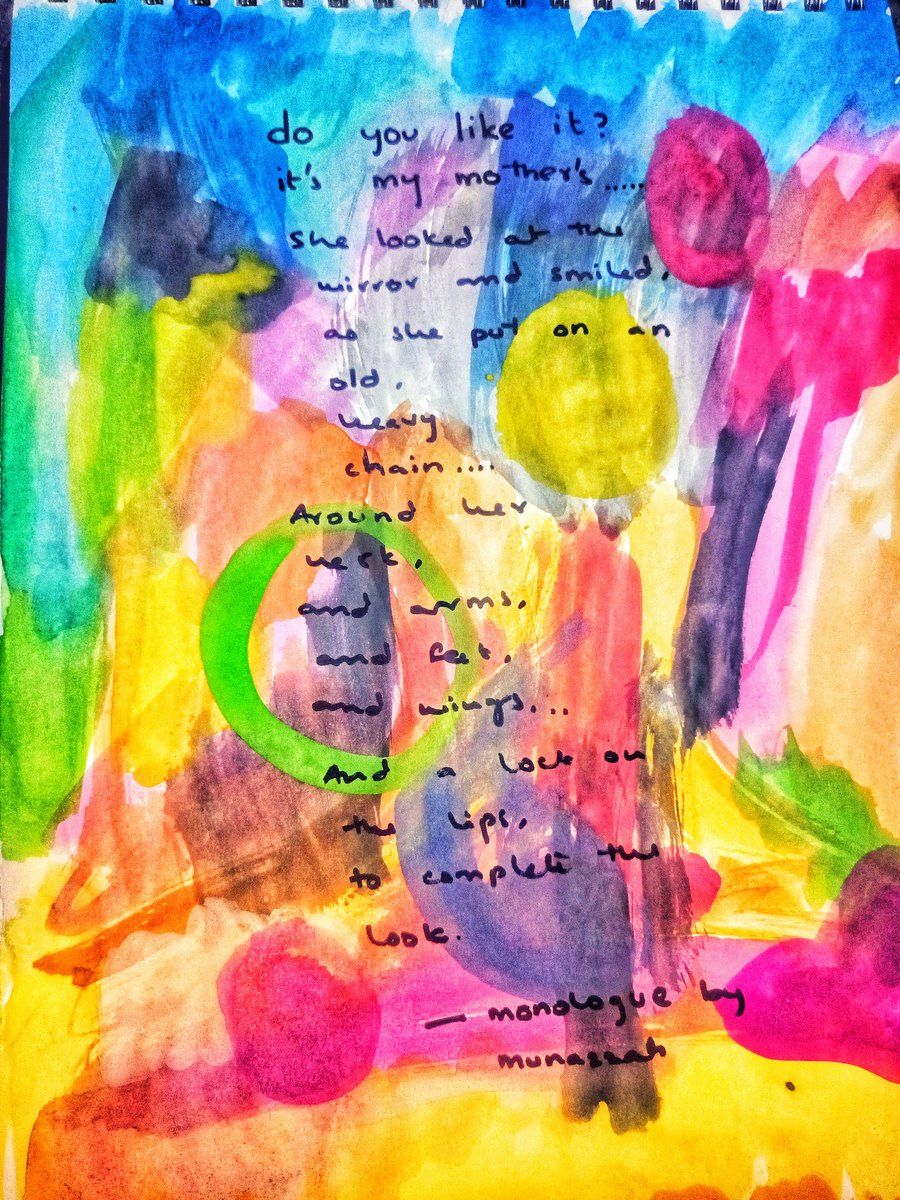 do you like it?
it's my mother's.....
she looked at the
mirror and smiled,
as she put on an
old,
heavy
chain....
Around her
neck,
and arms,
and feet,
and wings...
And a lock on
the lips,
to complete the
look.
— monologue by
munazzah